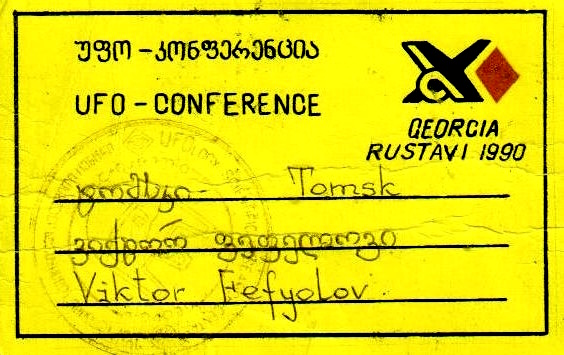 უფო – კონფერენცია
UFO – CONFERENCE
GEORGIA
RUSTAVI 1990
ტომსკი- Tomsk
ვიქტორ ფეფელოვი
Viktor Fefyolov
UFOLOGY